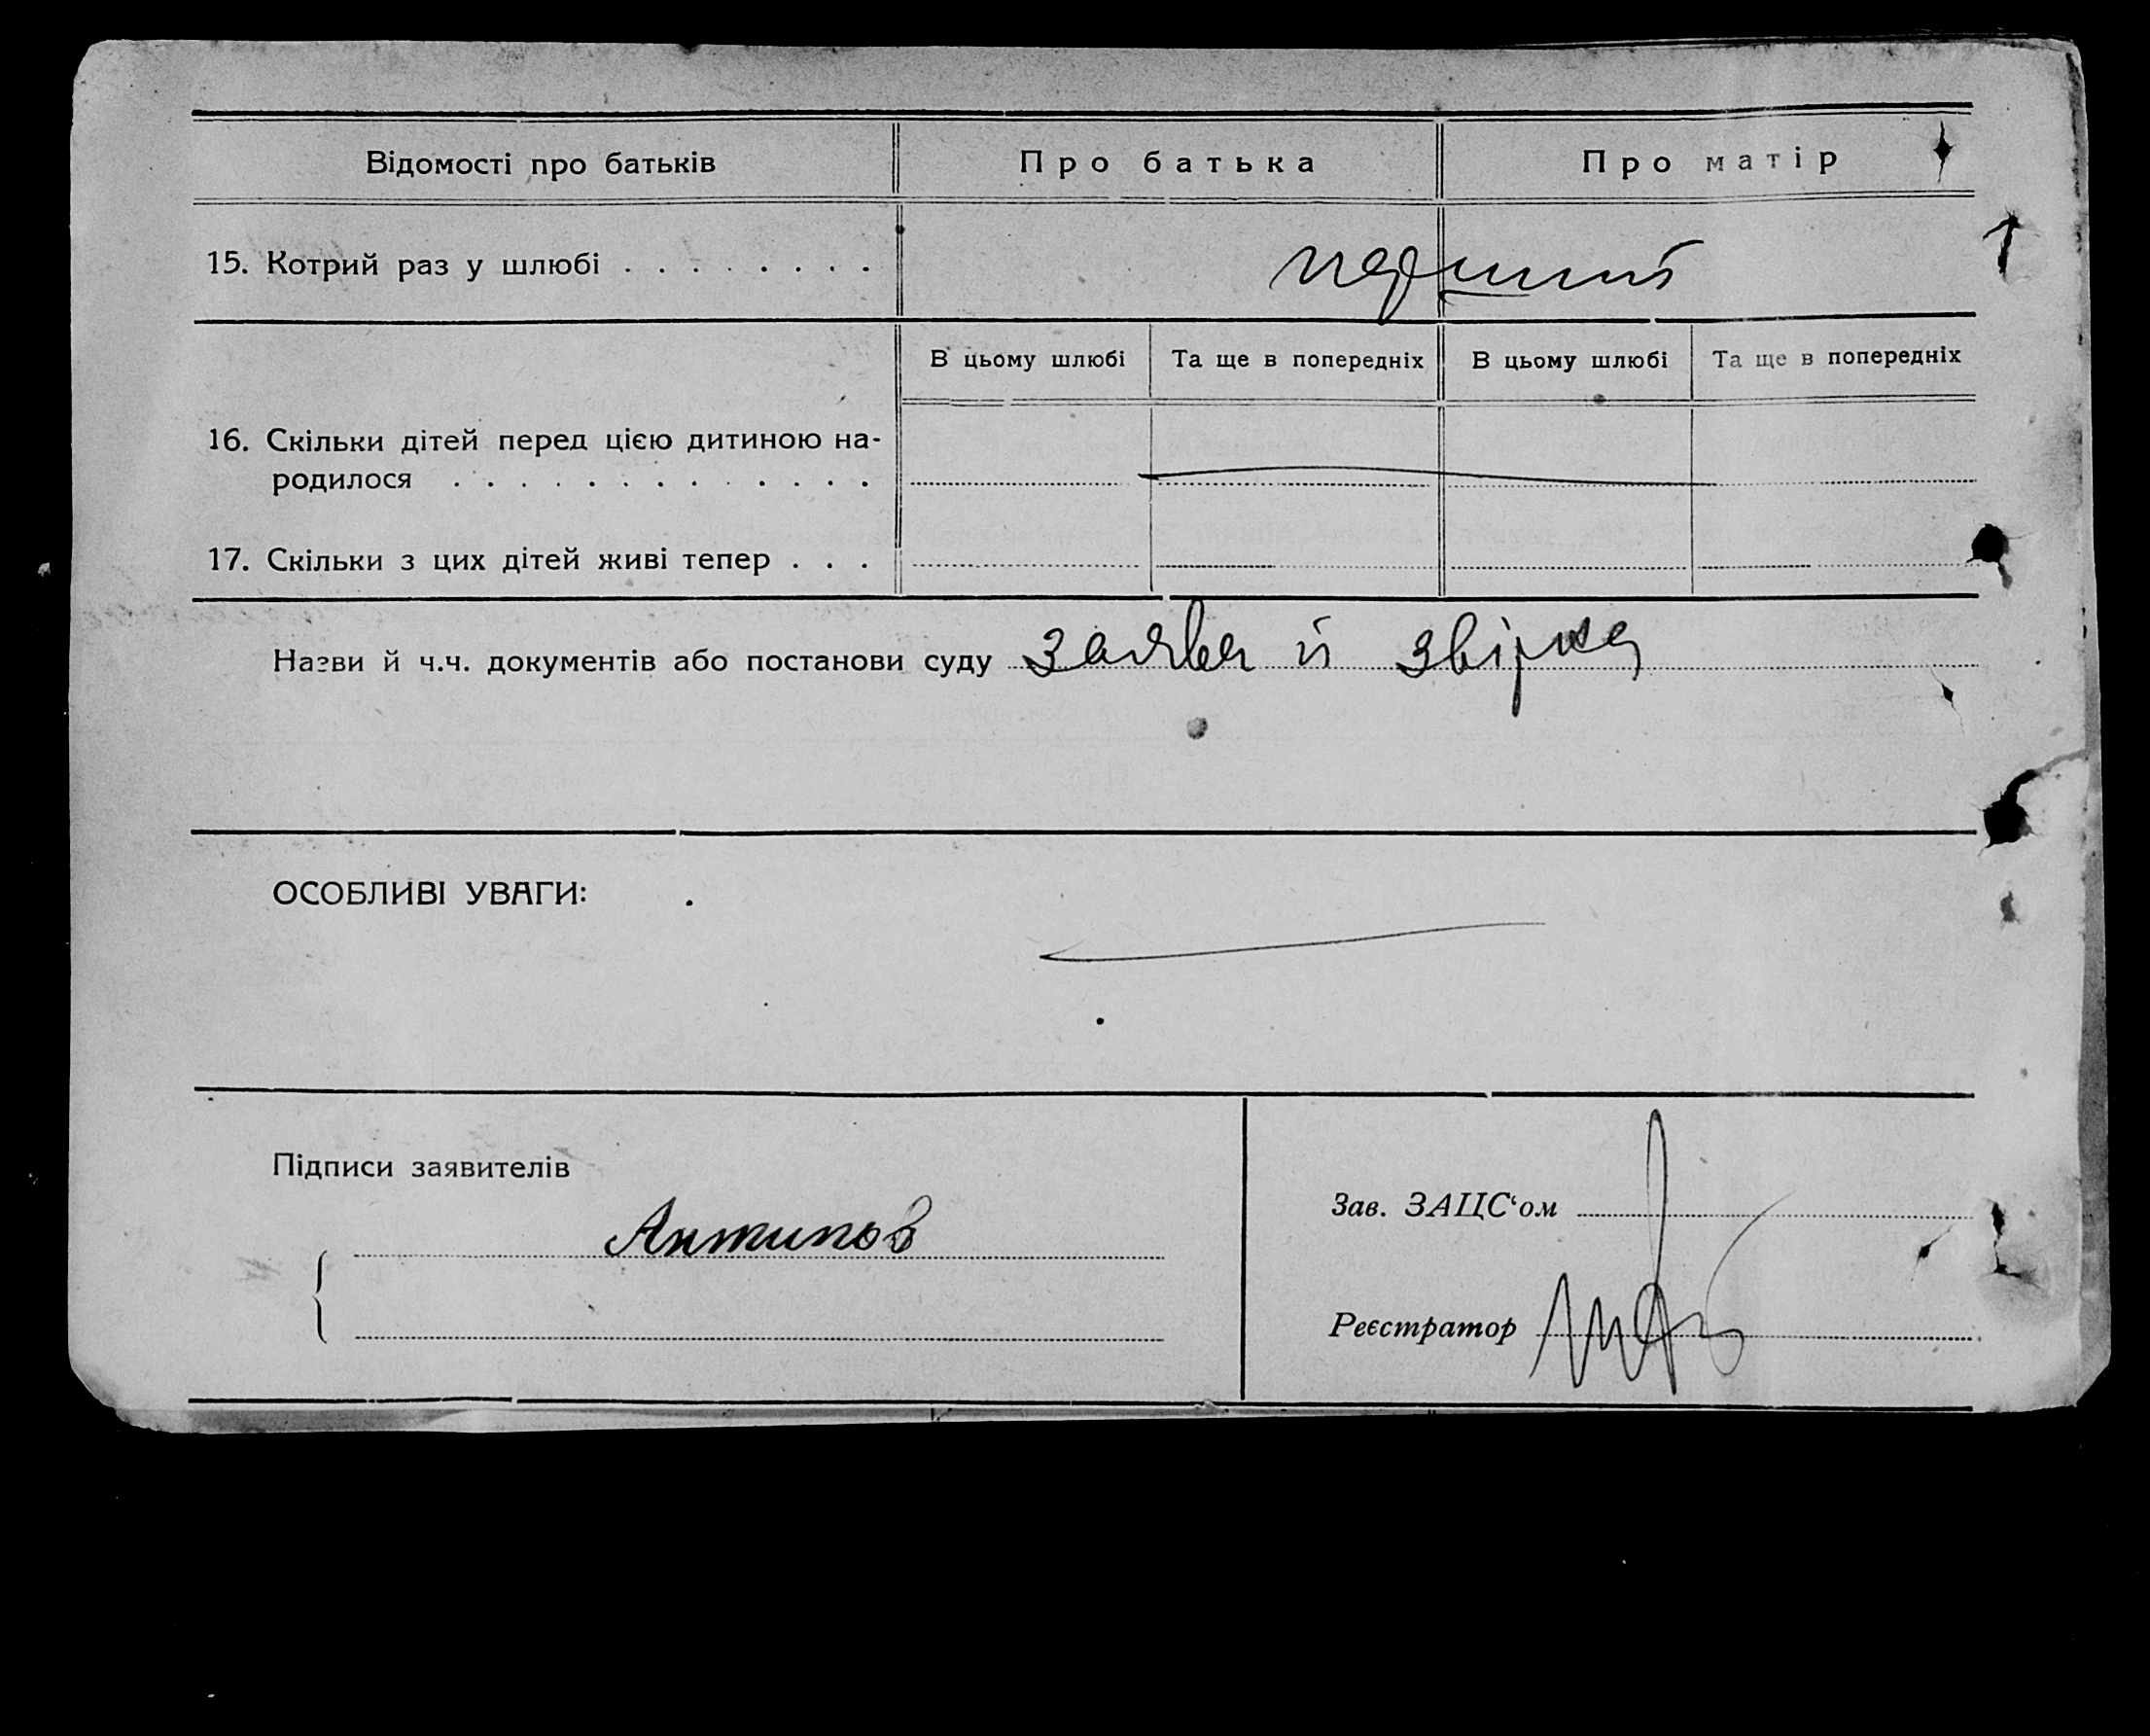 Відомості про батьків Про батька Про матір
15. Котрий раз у шлюбі . . . . . . . . перший
В цьому шлюбі Та ще в попередніх В цьому шлюбі Та ще в попередніх
16. Скільки дітей перед цією дитиною на-
родилося . . . . . . . . . . . . .
17. Скільки з цих дітей живі тепер . . .
Назви й ч.ч. документів або постанови суду заява й звірка
ОСОБЛИВІ УВАГИ:
Підписи заявителів
Зав. ЗАЦС‘ом
Антипов
Реєстратор